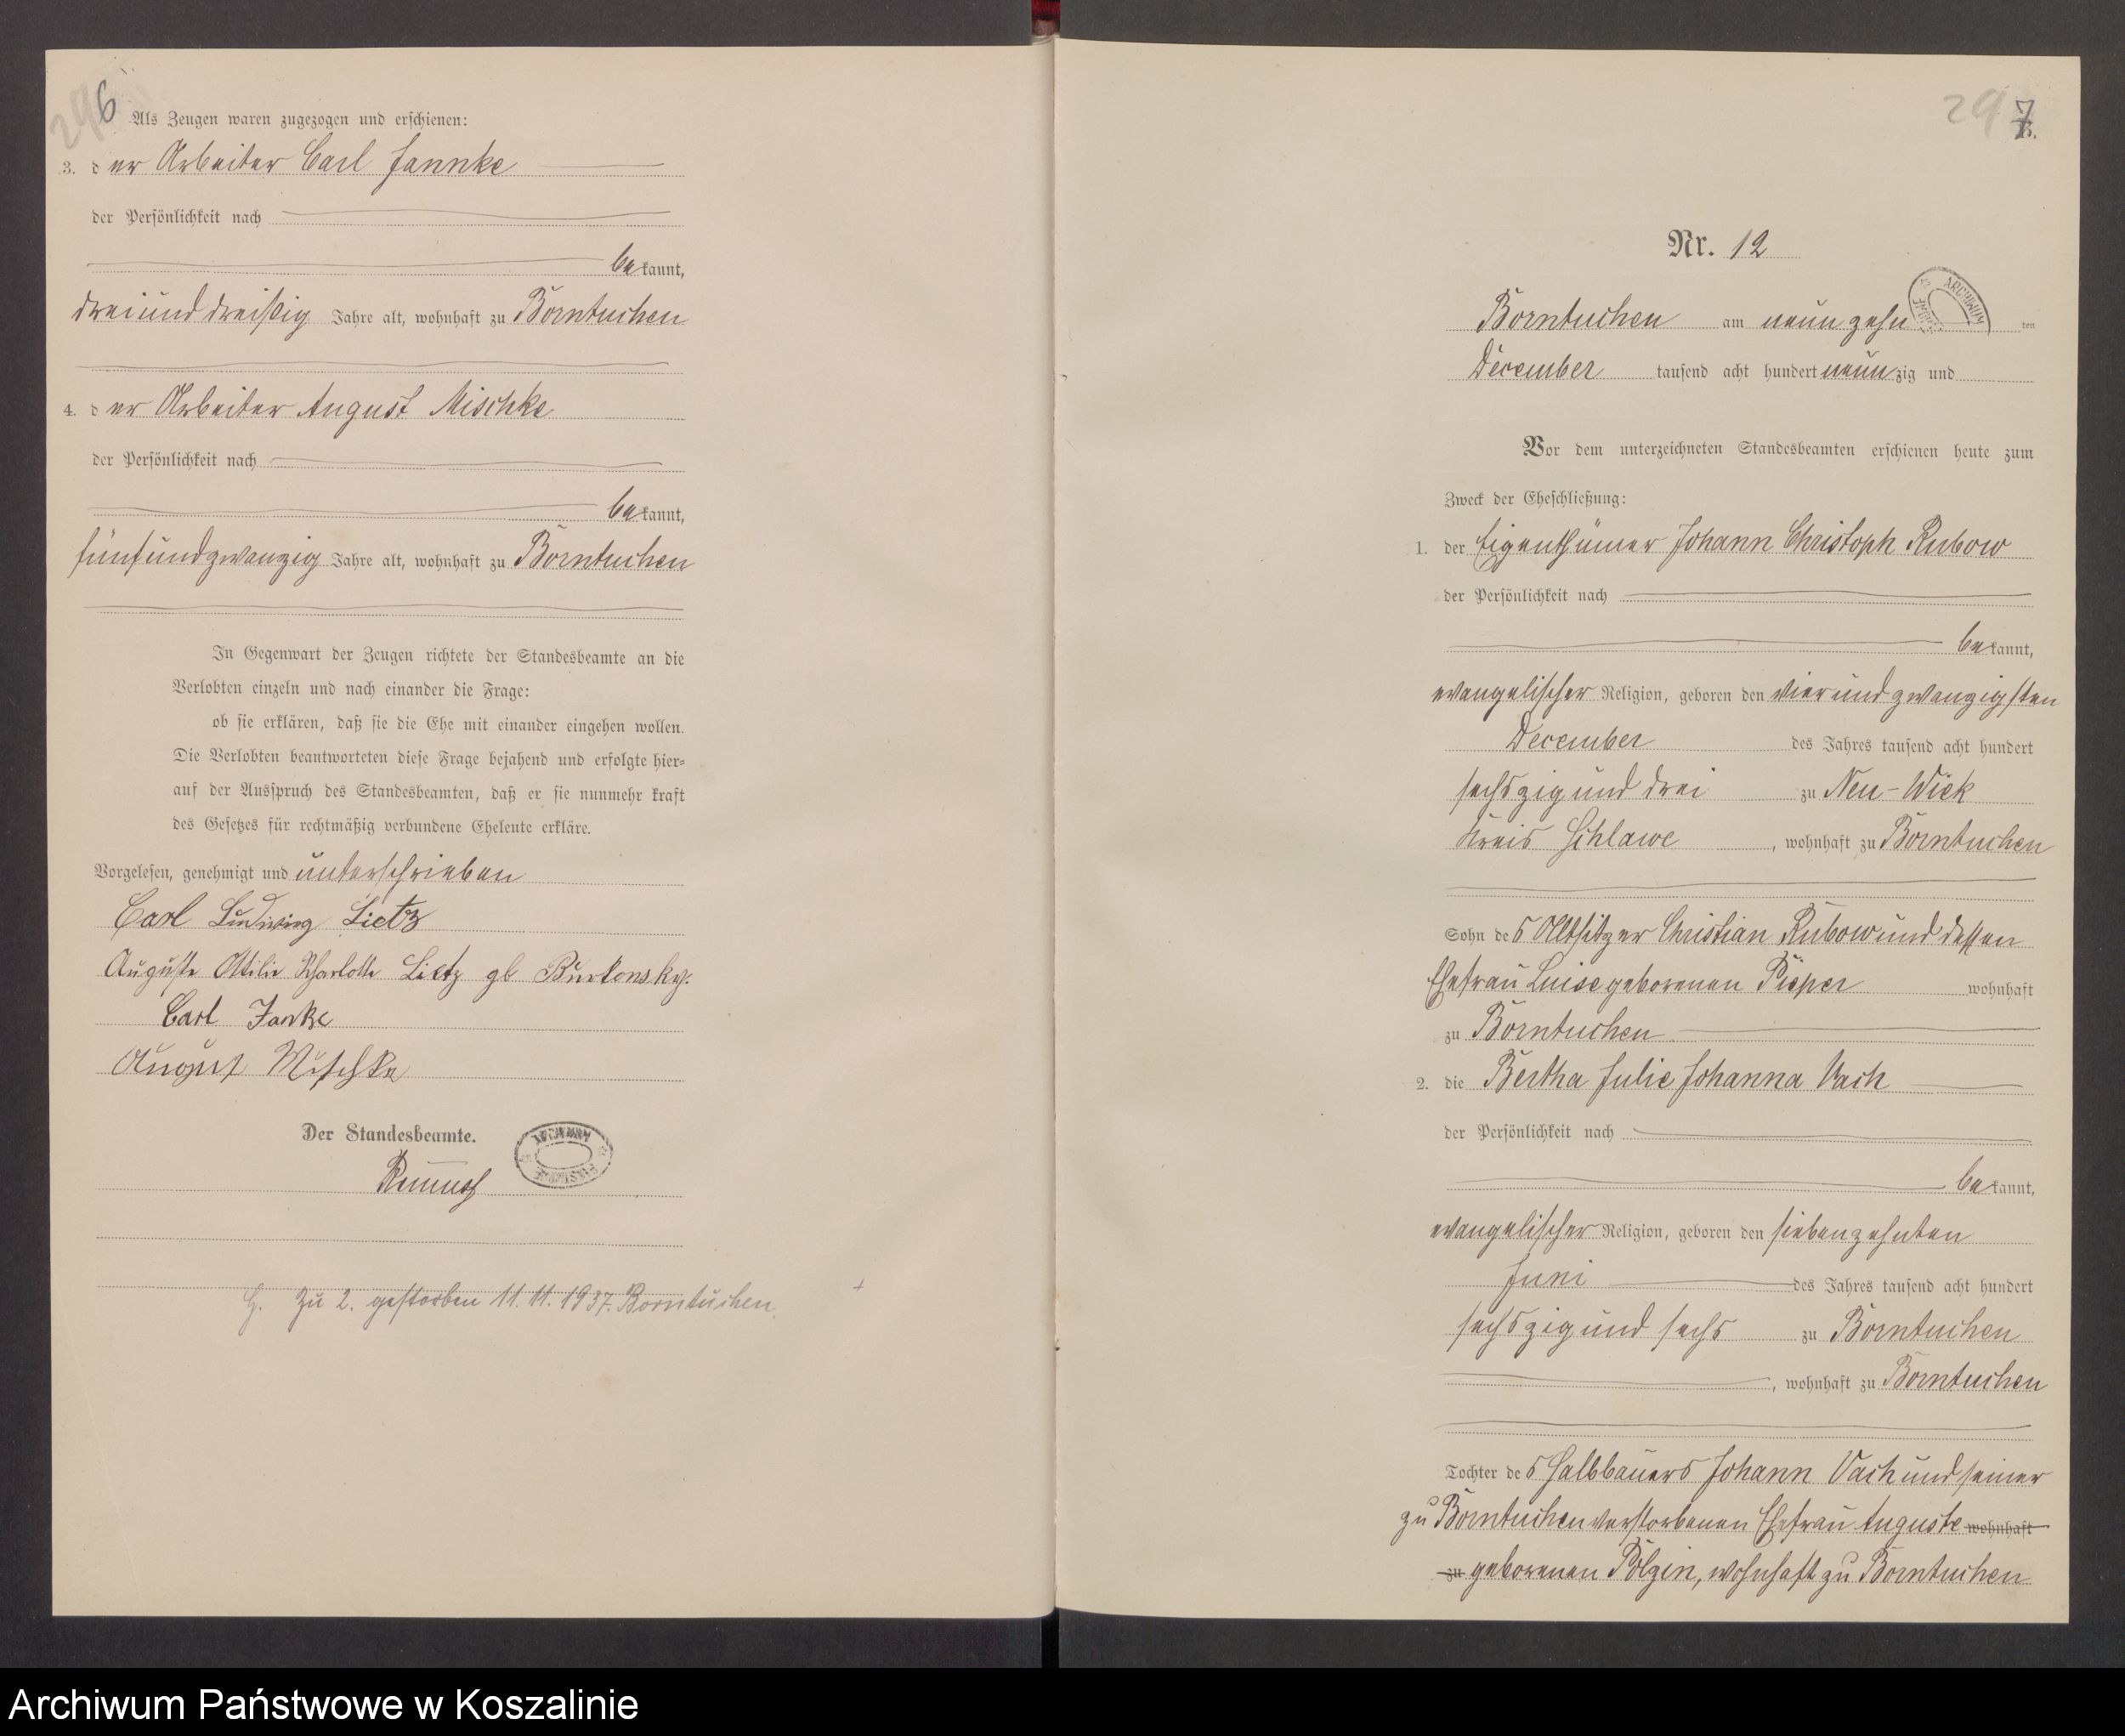 296
Als Zeugen waren zugezogen und erschienen:
3. der Arbeiter Carl Jannke
der Persönlichkeit nach
bekannt,
dreiunddreißig Jahre alt, wohnhaft zu Borntuchen
4. der Arbeiter August Mischke
der Persönlichkeit nach
bekannt,
fünfundzwanzig Jahre alt, wohnhaft zu Borntuchen
In Gegenwart der Zeugen richtete der Standesbeamte an die
Verlobten einzeln und nach einander die Frage:
ob sie erklären, daß sie die Ehe mit einander eingehen wollen.
Die Verlobten beantworteten diese Frage bejahend und erfolgte hier-
auf der Ausspruch des Standesbeamten, daß er sie nunmehr kraft
des Gesetzes für rechtmäßig verbundene Eheleute erkläre.
Vorgelesen, genehmigt und unterschrieben
Carl Ludwig Lietz
Auguste Ottilie Charlotte Lietz gb
Carl Janke
August Mischke
Der Standesbeamte.
ARCHIWUM
Zu 2. gestorben 11.11.1937. Borntuchen
297
B.
Nr. 12
ARCHIWUM
Borntuchen am neunzehn ten
December tausend acht hundert neunzig und
Vor dem unterzeichneten Standesbeamten erschienen heute zum
Zweck der Eheschließung:
1. der Eigenthümer Johann Christoph Rubow
der Persönlichkeit nach
bekannt,
evangelischer Religion, geboren den vierundzwanzigsten
December des Jahres tausend acht hundert
sechszig und drei zu Neu-Wiek
Kreis Schlawe, wohnhaft zu Borntuchen
Sohn des Altsitzer Christian Rubow und dessen
Ehefrau Luise geborenen Pieper wohnhaft
zu Borntuchen
2. die Bertha Julie Johanna Vach
der Persönlichkeit nach
bekannt,
evangelischer Religion, geboren den siebenzehnten
Juni des Jahres tausend acht hundert
sechszig und sechs zu Borntuchen
, wohnhaft zu Borntuchen
Tochter des Halbbauers Johann Vach und seiner
zu Borntuchen verstorbenen Ehefrau Auguste wohnhaft
zu geborenen Polzin, wohnhaft zu Borntuchen
Archiwum Państwowe w Koszalinie